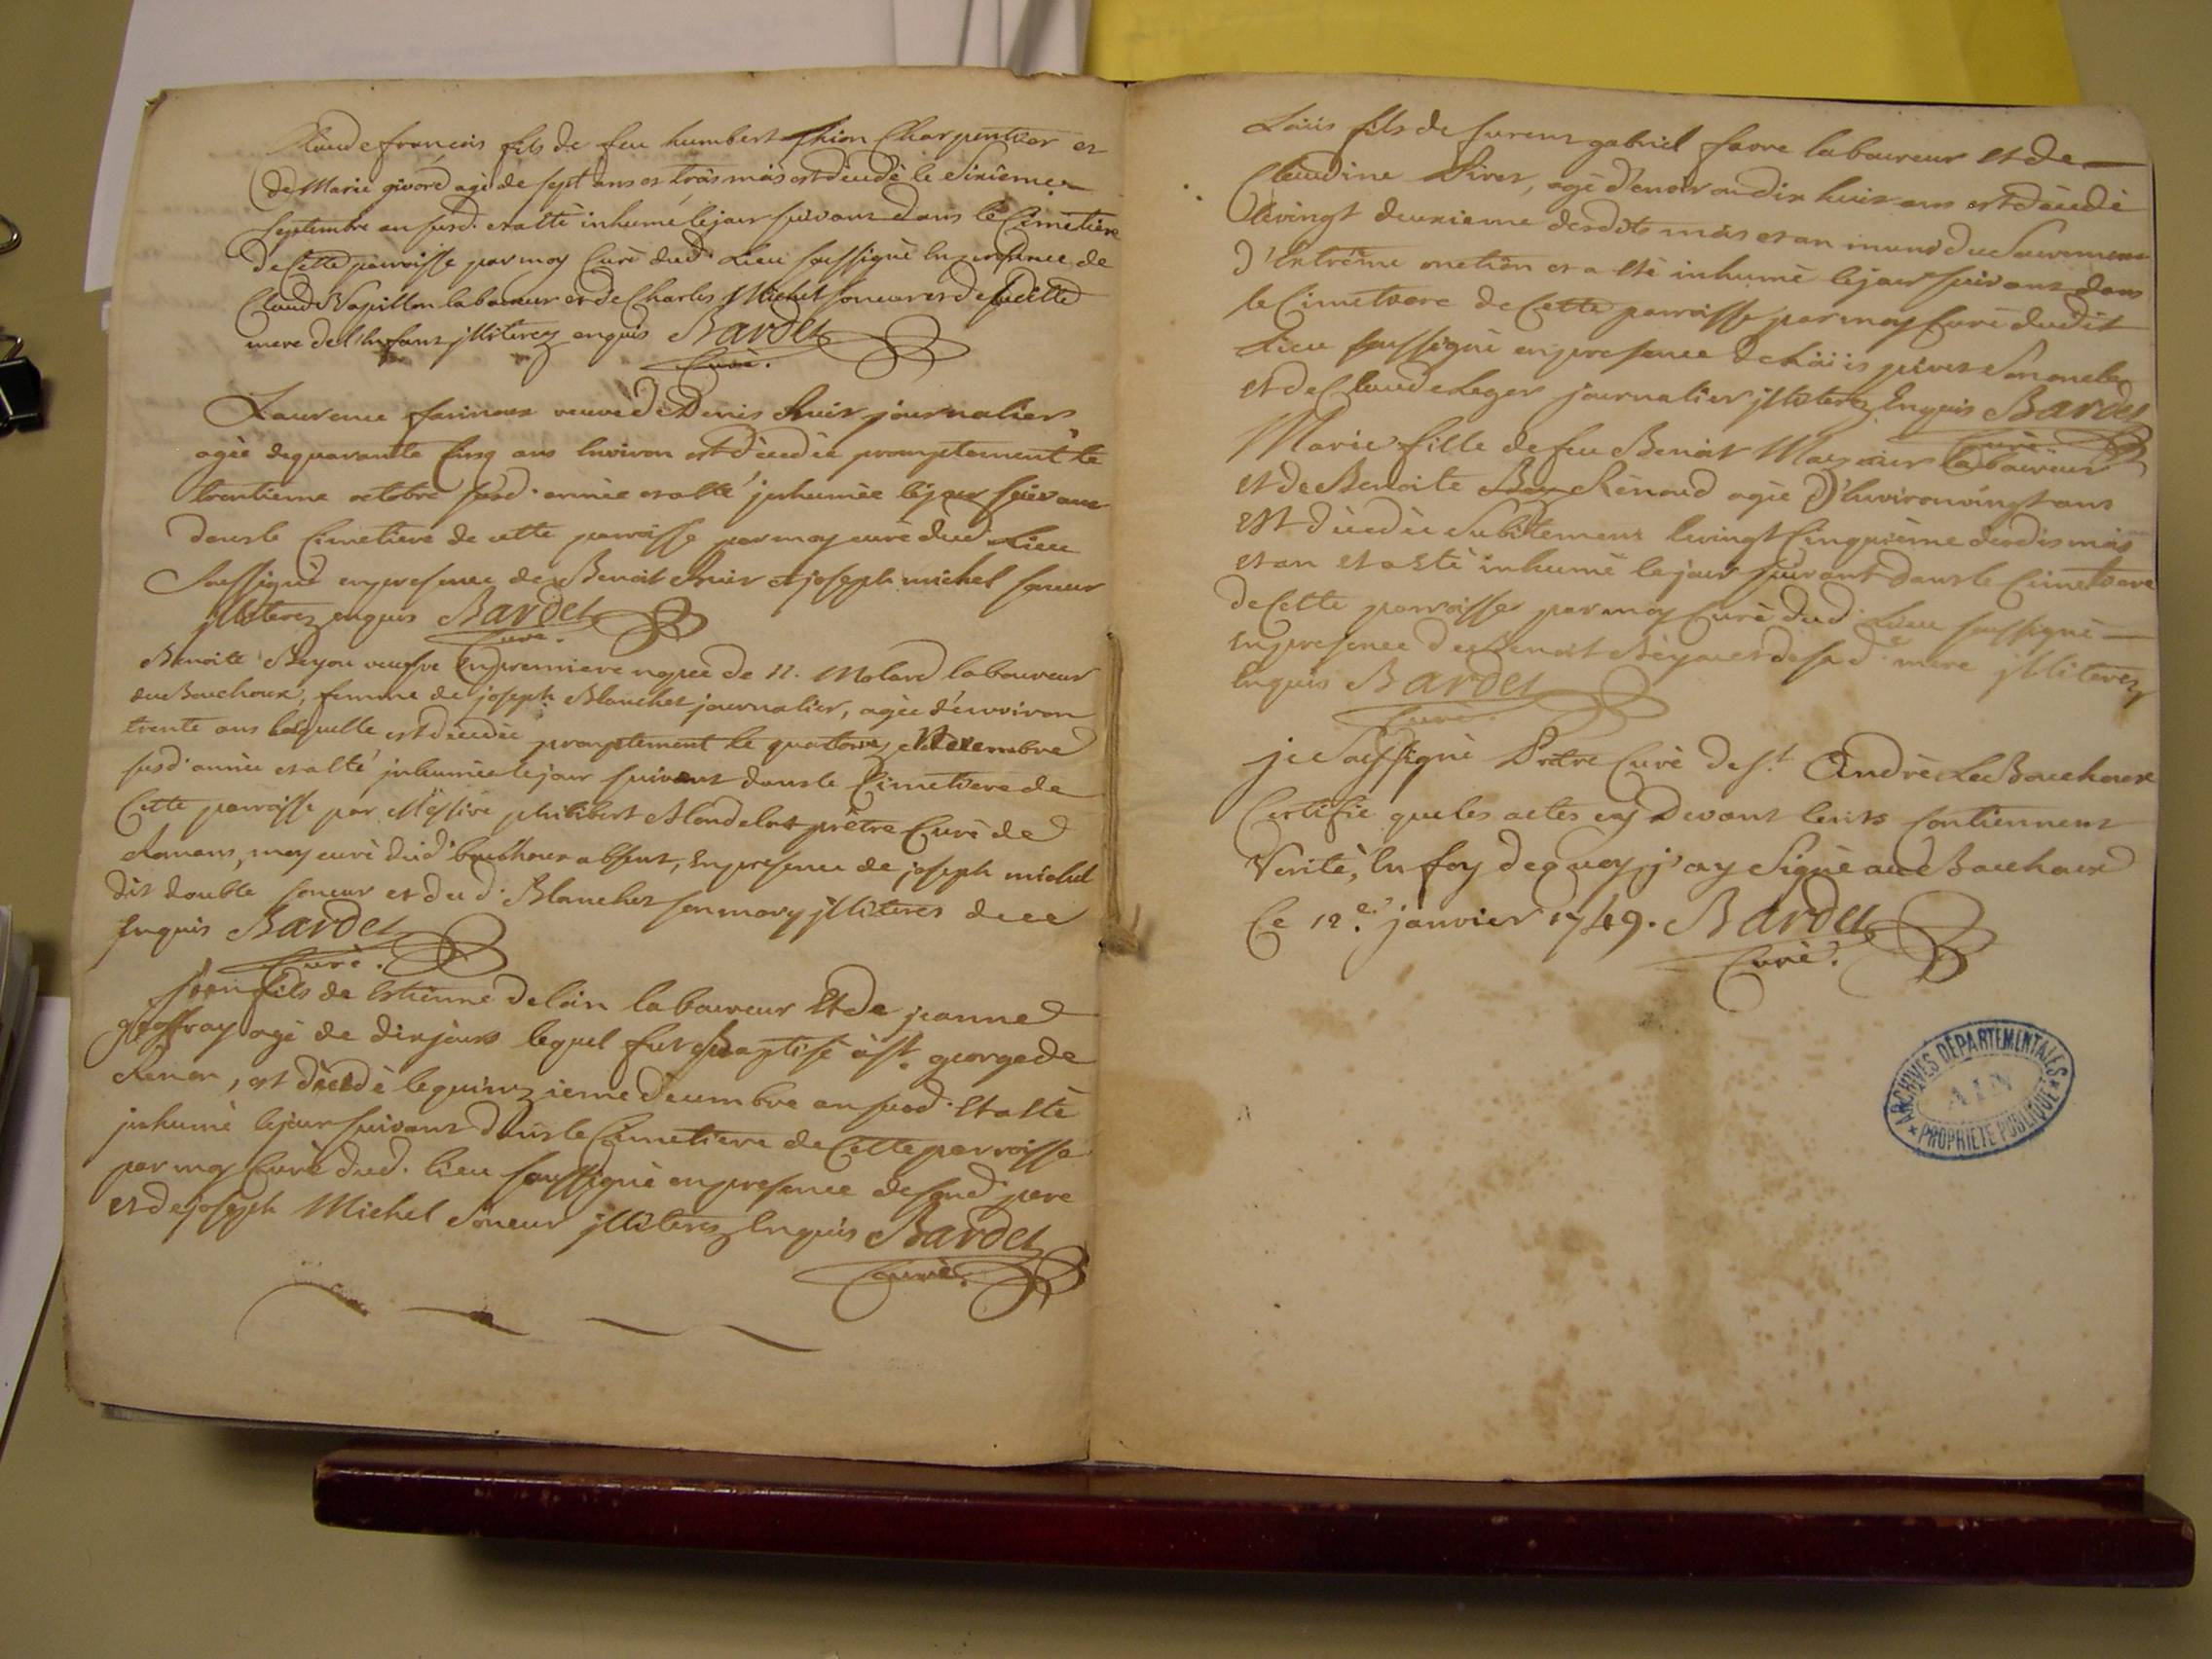 Claude francois fils de feu humbert thion Charpentier et
de Marie givord agé de sept ans et trois mois est décédé le Sixieme
Septembre an susd. et a été inhumé le jour suivant dans le Cimetiere
de Cette parroisse par moy Curé dud. Lieu soussigné En presence de
Claude Vapillon laboureur et de Charles Michel soneur et de
mere de l'Enfant jlliterez enquis Bardet
Curé.
Laurence farinoux veuve de Denis Chuit journalier,
agée de quarante Cinq ans Environ est décédée promptement le
trentieme octobre susd. année et a été jnhumée le jour suivant
dans le Cimetiere de cette parroisse par moy curé dud. Lieu
Soussigné en presence de Benoit Chuit et joseph michel soneur
jlliterez enquis Bardet
Curé.
Benoite Beyou veufve En premiere nopce de N. Molard laboureur
du Bouchoux, femme de joseph Blanchet journalier, agée d'environ
trente ans laquelle est décédée promptement le quatorze Decembre
susd. année et a été jnhumée le jour suivant dans le Cimetiere de
Cette parroisse par Messire philibert Blondelot prêtre Curé de
Romans, moy curé dud. bouchoux absent, En presence de joseph michel
dit double soneur et dud. Blanchet son mary jlliteres de ce
Enquis Bardet
Curé.
jean fils de Estienne deloin laboureur Et de jeanne
geoffray agé de dix jours lequel fut Baptisé à st. george de
Renon, est décédé le quinzieme décembre an susd. Et a été
jnhumé le jour suivant dans le Cimetiere de Cette parroisse
par moy Curé dud. lieu soussigné en presence de sond. pere
et de joseph Michel Soneur jlliterez Enquis Bardet
Curé.
Loüis fils de furent gabriel favre laboureur Et de
Claudine Pivet, agé d'environ dix huit ans est décédé
le vingt deuxieme desdits mois et an muni du Sacrement
D'Extrême onction et a été inhumé le jour suivant dans
le Cimetiere de Cette parroisse par moy Curé dudit
Lieu soussigné en presence de Loüis pivet Son oncle
et de Claude Leger journalier jlliterez Enquis Bardet
Curé
Marie fille de feu Benoit Mazuir laboureur
et de Benoite Renaud agée D'Environ vingt ans
Est décédée Subitement le vingt Cinquième desdits mois
et an et a été inhumé le jour suivant dans le Cimetiere
de Cette parroisse par moy Curé dud. Lieu soussigné
En presence de Benoit Beyou et de sad. mere jlliterez
Enquis Bardet
Curé.
je Soussigné Prêtre Curé de st. André Le Bouchoux
Certifie que les actes cy Devant Ecrits Contiennent
Verité, En foy de quoy j'ay Signé aud. Bouchoux
Ce 12e. janvier 1749. Bardet
Curé.
ARCHIVES DÉPARTEMENTALES
AIN
PROPRIÉTÉ PUBLIQUE